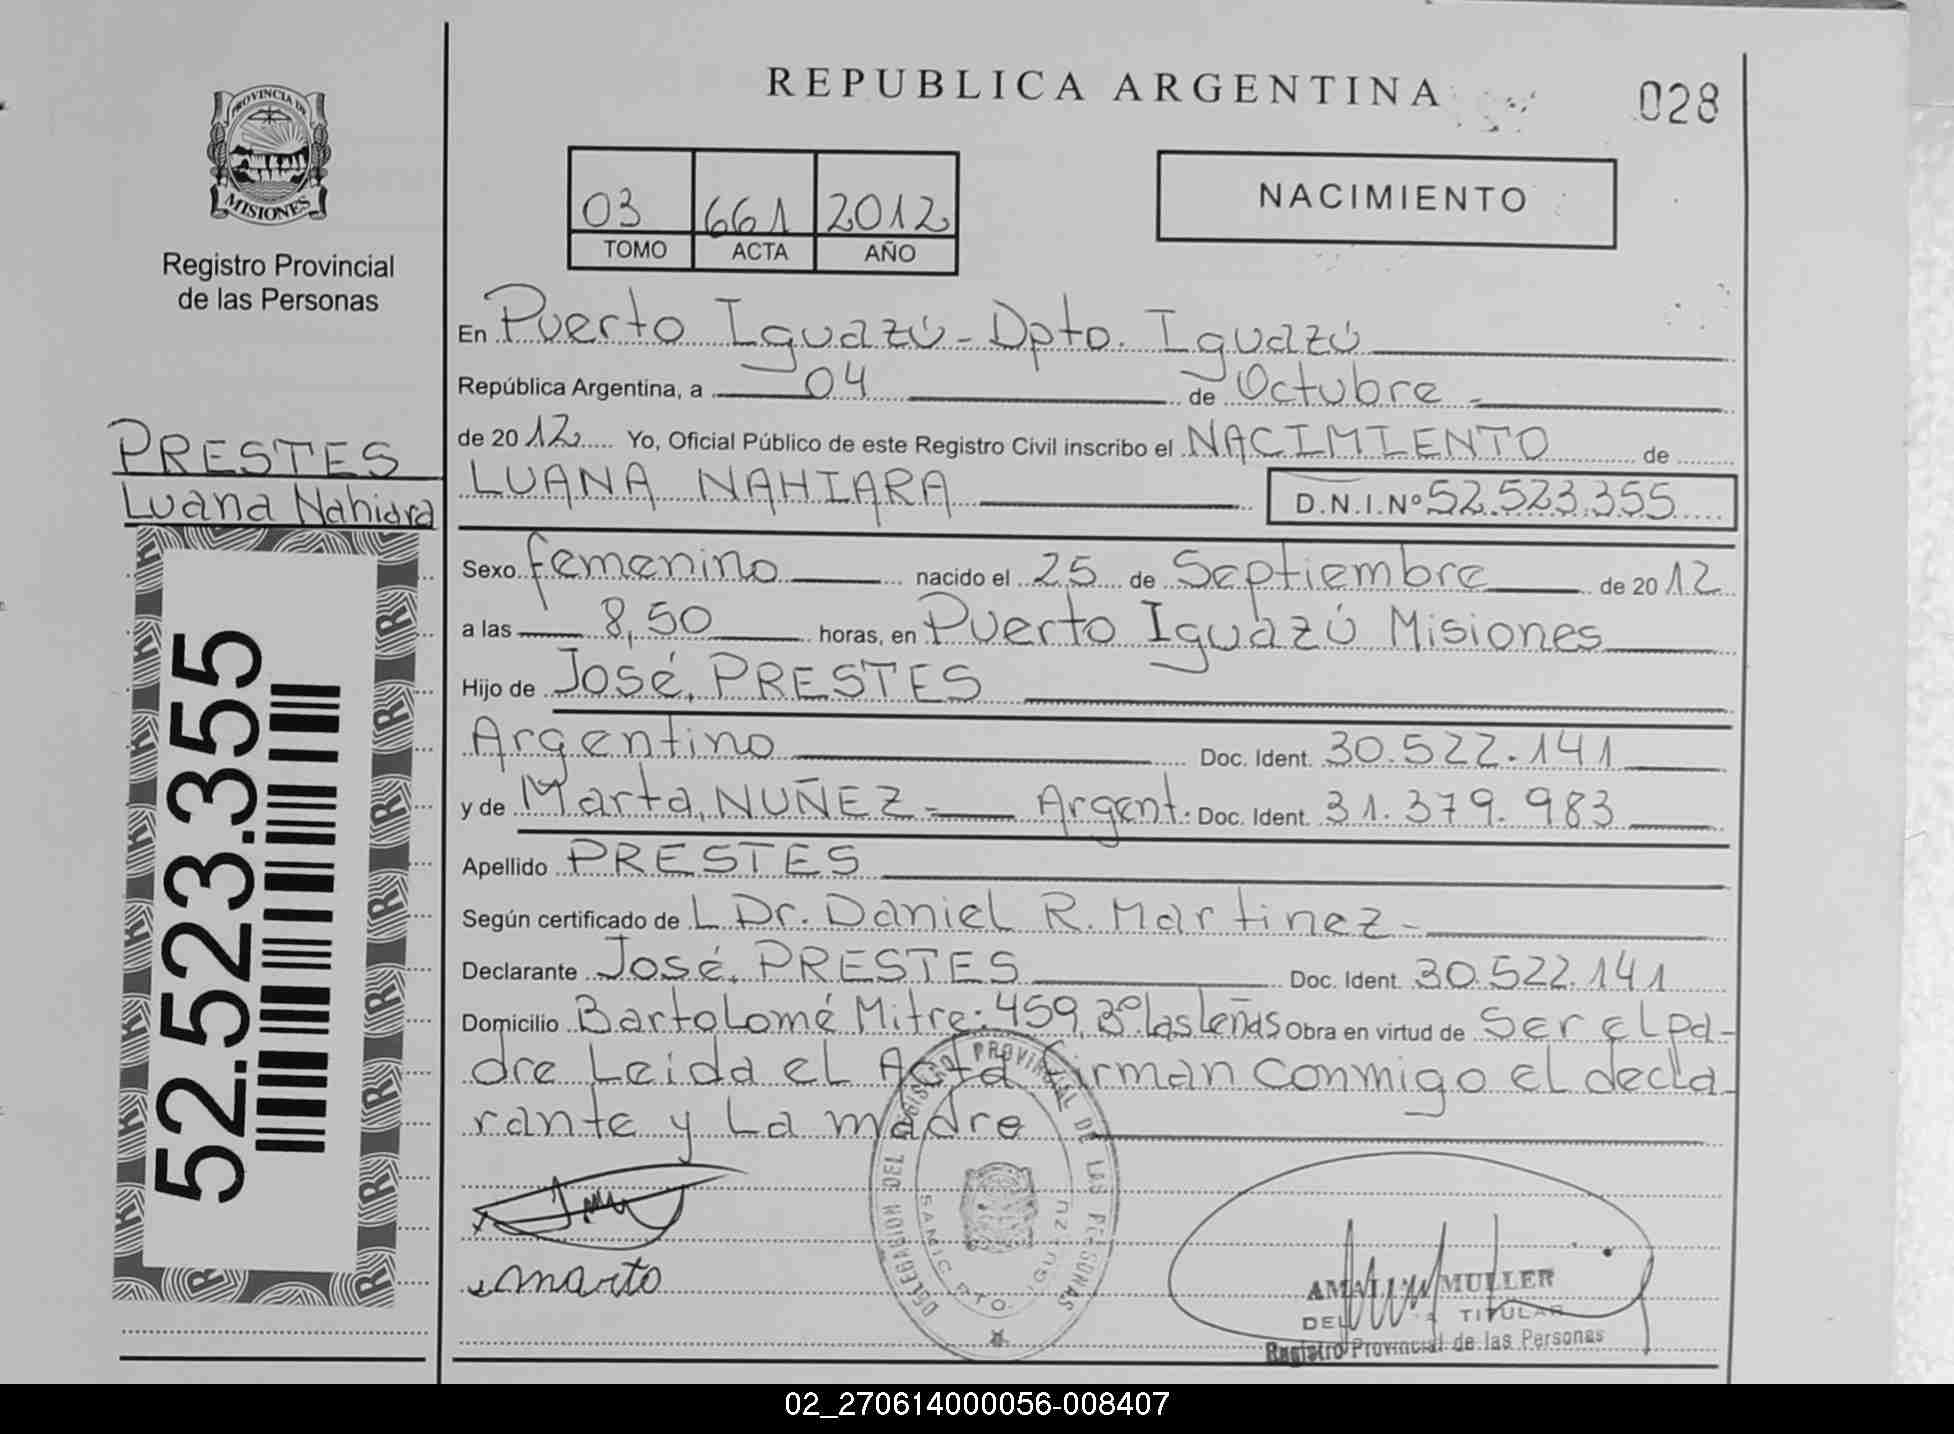 REPUBLICA ARGENTINA
028
PROVINCIA DE
MISIONES
Registro Provincial
de las Personas
03 661 2012
TOMO ACTA AÑO
NACIMIENTO
En Puerto Iguazú - Dpto. Iguazú
República Argentina, a 04 de Octubre -
de 2012 Yo, Oficial Público de este Registro Civil inscribo el NACIMIENTO de
LUANA NAHIARA D.N.I.Nº 52.523.355
PRESTES
Luana Nahiara
52.523.355
Sexo femenino nacido el 25 de Septiembre de 2012
a las 8,50 horas, en Puerto Iguazú Misiones
Hijo de José, PRESTES
Argentino Doc. Ident. 30.522.141
y de Marta, NUÑEZ - Argent. Doc. Ident. 31.379.983
Apellido PRESTES
Según certificado de L Dr. Daniel R. Martinez -
Declarante José, PRESTES Doc. Ident. 30.522.141
Domicilio Bartolomé Mitre: 459, Bº las Leñas Obra en virtud de Ser el pa-
dre Leida el Acta firman conmigo el decla-
rante y La madre
DELEGACION DEL REGISTRO PROVINCIAL DE LAS PERSONAS
marta
MULLER
TITULAR
Registro Provincial de las Personas
02_270614000056-008407